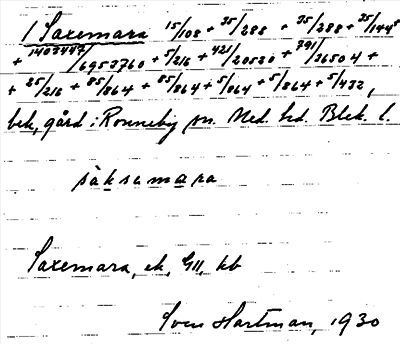 1 Saxemara 15/108 + 35/288 + 35/288 + 35/144
+ 1403447/6953760 + 5/216 + 421/20520 + 791/36504 +
+ 25/216 + 85/864 + 85/864 + 5/864 + 5/864 + 5/432,
bek, gård i Ronneby sn. Med. hd. Blek. l.
säksamara
Saxemara, ek, GII, kb
Sven Hartman, 1930